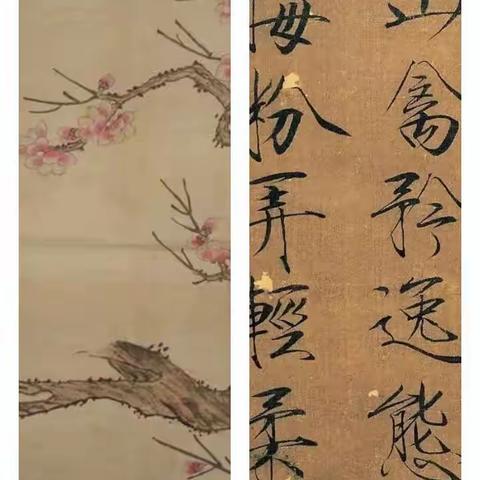 山禽矜逸態
梅粉弄輕柔